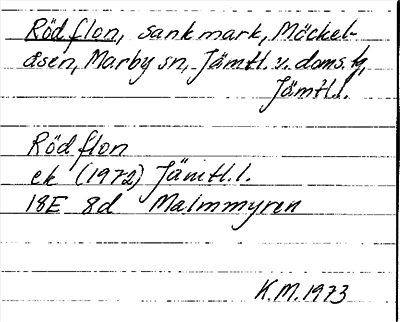 Rödflon, sank mark, Möckel-
åsen, Marby sn, Jämtl. v. doms.lg,
Jämtl.l.
Rödflon
ek (1972) Jämtl.l.
18E 8d Malmmyren
K.M. 1973